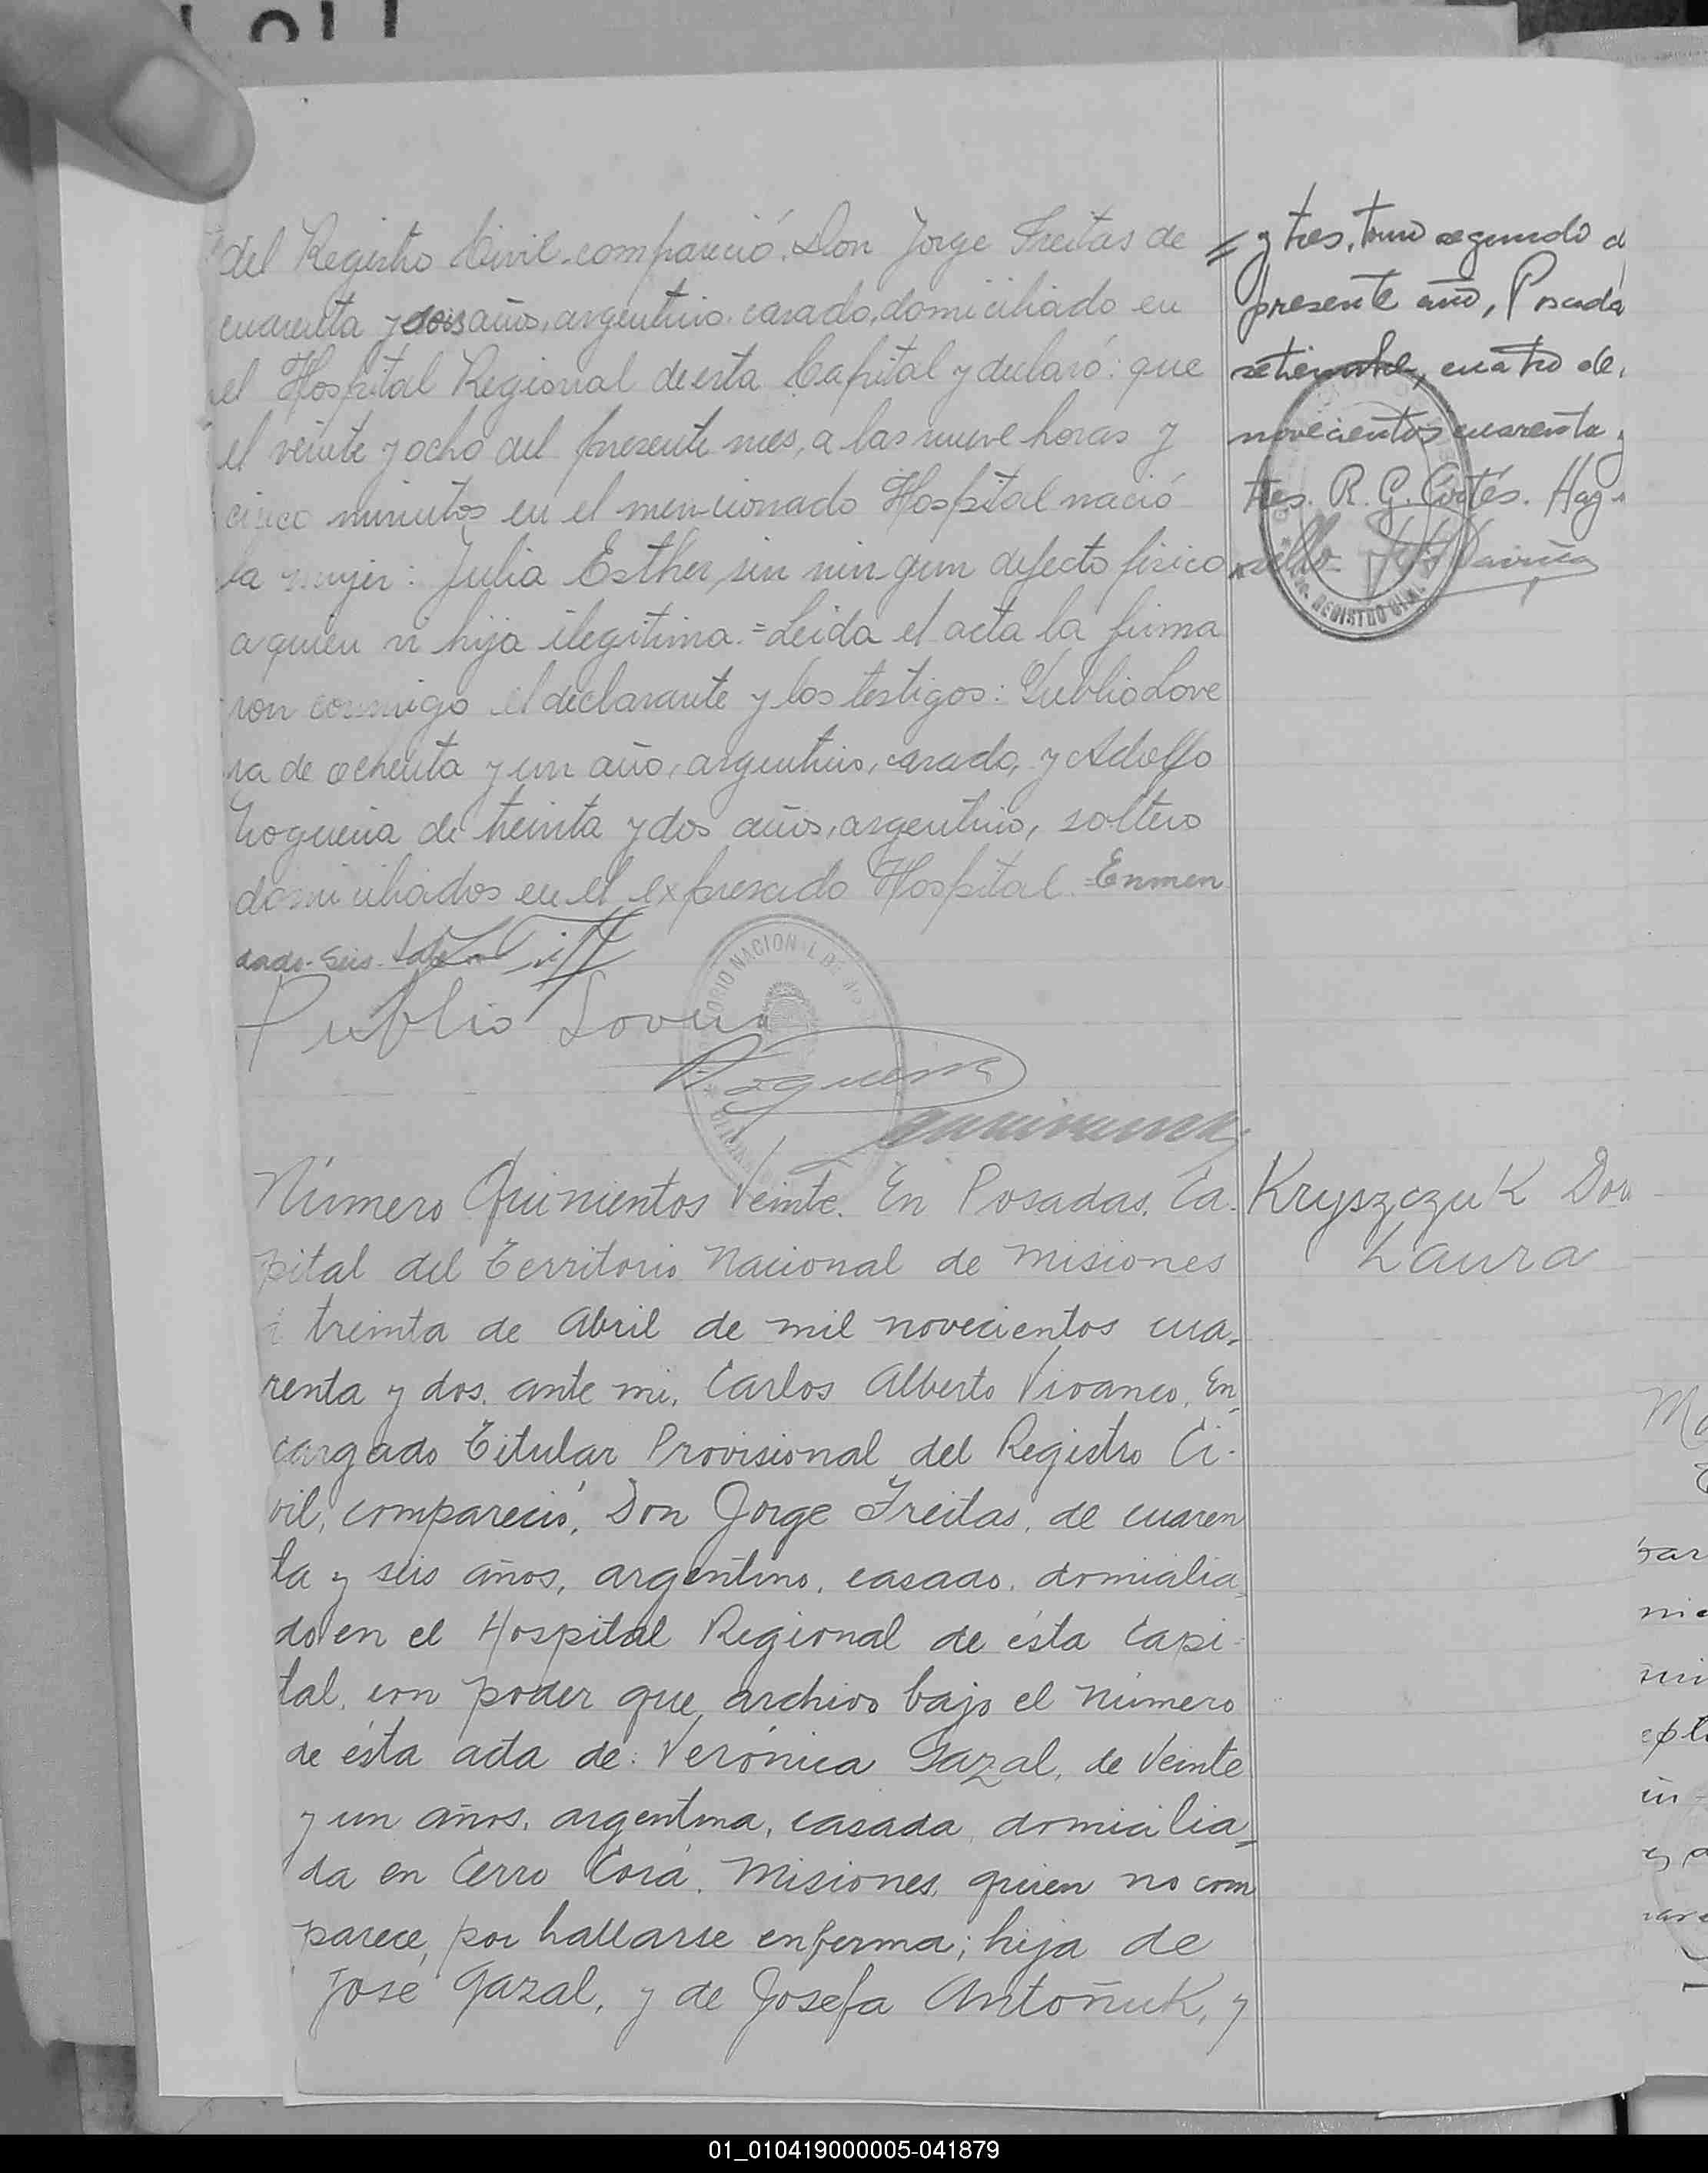 del Registro Civil compareció, Don Jorge Freitas de
cuarenta y seis años, argentino, casado, domiciliado en
el Hospital Regional de esta Capital y declaró: que
el veinte y ocho del presente mes, a las nueve horas y
cinco minutos en el mencionado Hospital nació
la mujer: Julia Esther, sin ningun defecto fisico
a quien vi hija ilegitima.=Leida el acta la firma
ron conmigo el declarante y los testigos: Publio Love
ra de ochenta y un año, argentino, casado, y Adolfo
Noguera de treinta y dos años, argentino, soltero
domiciliados en el expresado Hospital.=Enmen
dado-seis-Vale
Publio Lovera
Noguera
= y tres, tomo segundo d
presente año, Posada
setiembre, cuatro de
novecientos cuarenta y
tres. R. G. Cortés. Hay
sello.
REGISTRO CIVIL
Número Quinientos Veinte. En Posadas, Ca-
pital del Territorio Nacional de Misiones
a treinta de Abril de mil novecientos cua-
renta y dos, ante mi, Carlos Alberto Vivanco, En
cargado Titular Provisional del Registro Ci-
vil, compareció, Don Jorge Freitas, de cuaren
ta y seis años, argentino, casado, domicilia
do en el Hospital Regional de ésta Capi-
tal, con poder que archivo bajo el número
de ésta acta de: Verónica Gazal, de Veinte
y un años, argentina, casada, domicilia
da en Cerro Corá, Misiones, quien no com
parece, por hallarse enferma; hija de
José Gazal, y de Josefa Antoñuk, y
Kryszczuk Dor
Laura
01_010419000005-041879